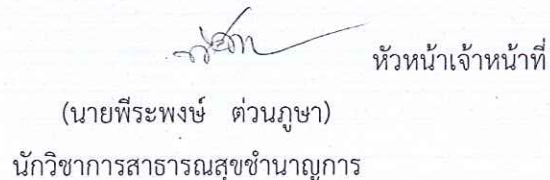 หัวหน้าเจ้าหน้าที่
(นายพีระพงษ์ ต่วนภูษา)
นักวิชาการสาธารณสุขชำนาญการ